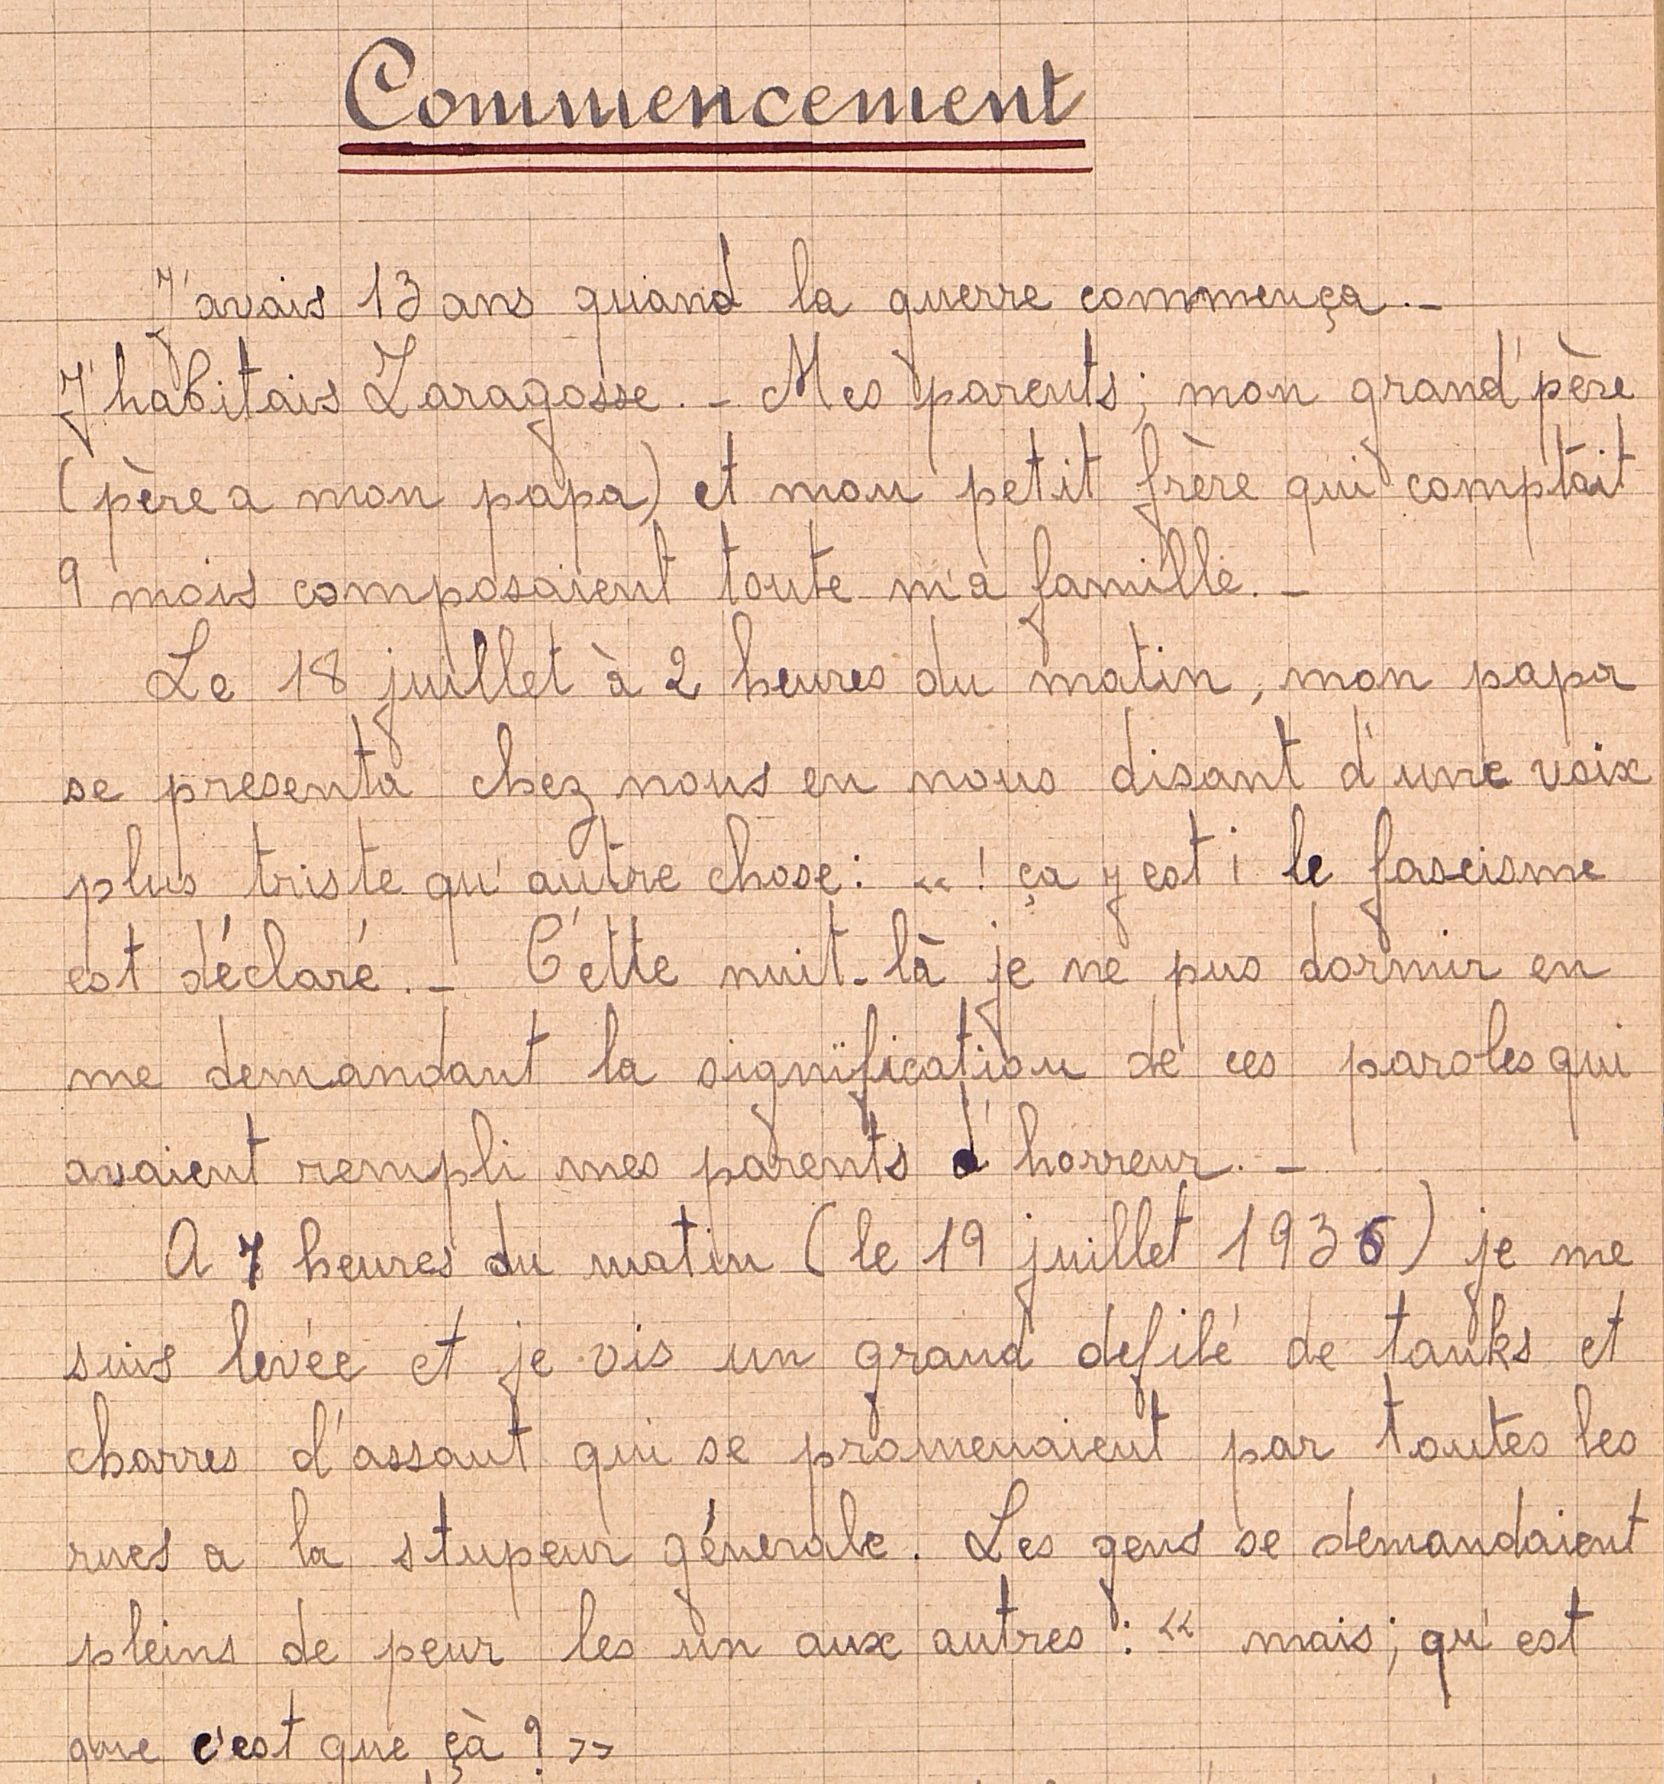 Commencement
J'avais 13 ans quand la guerre commença. -
J'habitais Zaragosse. - Mes parents; mon grand'père
(père a mon papa) et mon petit frère qui comptait
9 mois composaient toute ma famille. -
Le 18 juillet à 2 heures du matin, mon papa
se presenta chez nous en nous disant d'une voix
plus triste qu'autre chose: « ! ça y est ¡ le fascisme
est déclaré. - Cette nuit-là je ne pus dormir en
me demandant la signification de ces paroles qui
avaient rempli mes parents d'horreur. -
A 7 heures du matin (le 19 juillet 1936) je me
suis levée et je vis un grand defilé de tanks et
charres d'assaut qui se promenaient par toutes les
rues a la stupeur génerale. Les gens se demandaient
pleins de peur les un aux autres: « mais; qu'est
que c'est que çà? »